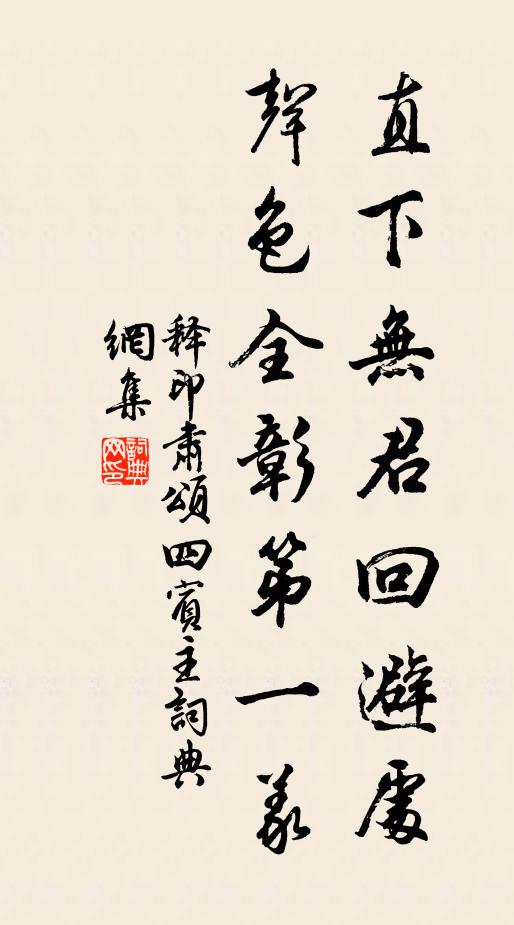 直下無君回避處
聲色全彰第一義
释印肅頌四賓主詞典
網集
詞典
网印